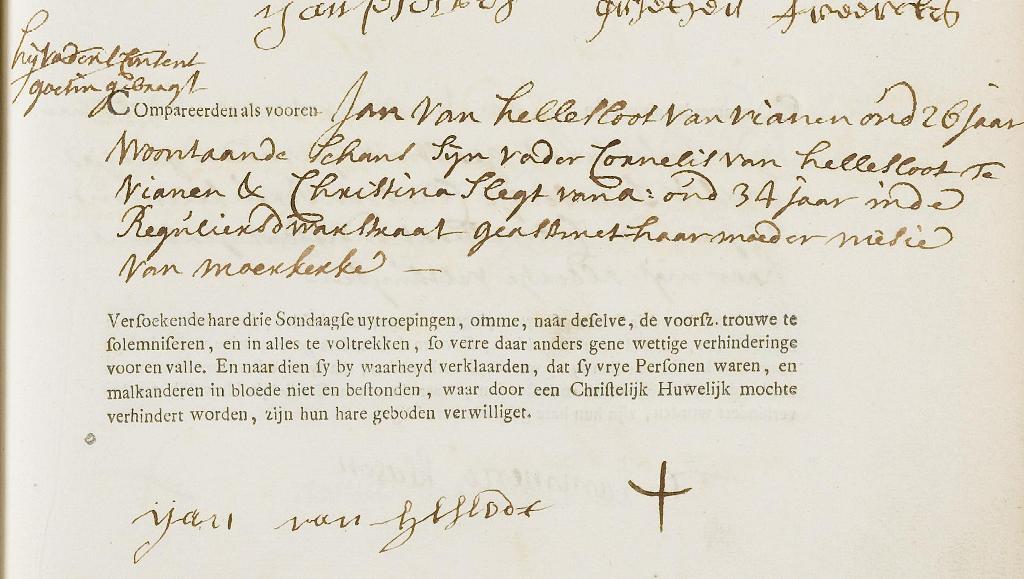 hij vaders Consent
goet in gebragt
COmpareerden als vooren Jan Van hellesloot van vianen oud 26 jaar
Woont aande Schans Sijn vader Cornelis van hellesloot Te
Vianen & Christina Slegt van a: oud 34 jaar inde
Reguliersdwarsstraat geast met haar moeder
van moerkerke
Versoekende hare drie Sondaagse uytroepingen, omme, naar deselve, de voorsz. trouwe te
solemniseren, en in alles te voltrekken, so verre daar anders gene wettige verhinderinge
voor en valle. En naar dien sy by waarheyd verklaarden, dat sy vrye Personen waren, en
malkanderen in bloede niet en bestonden, waar door een Christelijk Huwelijk mochte
verhindert worden, zijn hun hare geboden verwilliget.